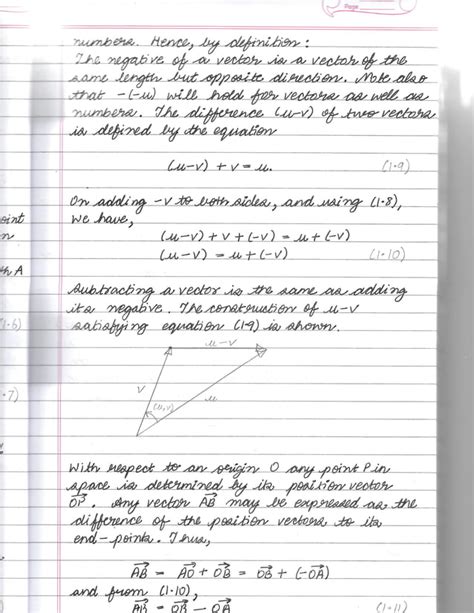 Page
numbers. Hence, by definition :
The negative of a vector is a vector of the
same length but opposite direction. Note also
that -(-u) will hold for vectors as well as
numbers. The difference (u-v) of two vectors
is defined by the equation
(u-v) + v = u. (1.9)
On adding -v to both sides, and using (1.8),
we have,
(u-v) + v + (-v) = u + (-v)
(u-v) = u + (-v) (1.10)
Subtracting a vector is the same as adding
its negative. The construction of u-v
satisfying equation (1.9) is shown.
u-v
v
u
(u,v)
With respect to an origin O any point P in
space is determined by its position vector
OP⃗. Any vector AB⃗ may be expressed as the
difference of the position vectors to its
end-points. Thus,
AB⃗ = AO⃗ + OB⃗ = OB⃗ + (-OA⃗)
and from (1.10)
AB⃗ = OB⃗ - OA⃗ (1.11)
oint
n
th A
(1.6)
.7)